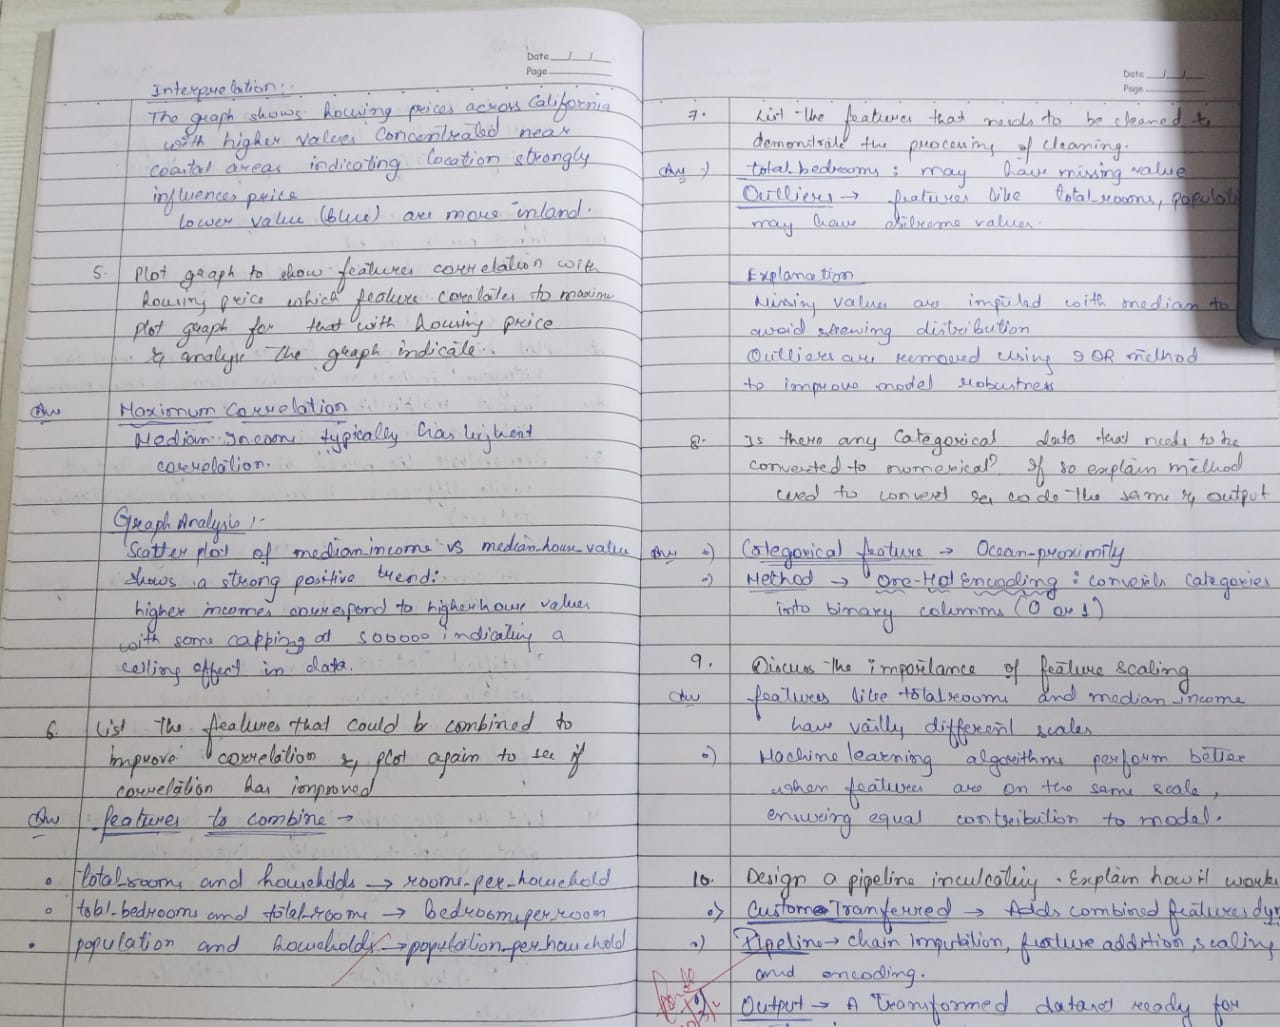 Date __/__/__
Page
Interpretation:-
The graph shows housing prices across California
with higher values concentrated near
coastal areas indicating location strongly
influences price
lower value (blue) are more inland.
5. Plot graph to show features correlation with
housing price which feature corelates to maxim
plot graph for that with housing price
& analyse the graph indicate..
Ans Maximum Correlation
Median Incom typically has highest
correlation.
Graph Analysis :-
Scatter plot of median_income vs median_house_value
shows a strong positive trend:
higher incomes correspond to higher house values
with some capping at 500000 indicating a
ceiling effect in data.
6. List the features that could be combined to
improve correlation & plot again to see if
correlation has improved
Ans features to combine →
total_rooms and households → rooms_per_household
total_bedrooms and total_rooms → bedrooms_per_room
population and households → population_per_household
Date __/__/__
Page
7. List the features that needs to be cleaned to
demonstrate the processing of cleaning.
Ans :) total_bedrooms : may have missing value
Outliers → features like total_rooms, populati
may have extreme values.
Explanation
Missing values are imputed with median to
avoid skewing distribution
Outliers are removed using IQR method
to improve model robustness
8. Is there any Categorical data that needs to be
converted to numerical? If so explain method
used to convert & code the same & output
Ans :) Categorical feature → Ocean-proximity
:) Method → One-Hot Encoding : converts categories
into binary columns (0 or 1)
9. Discuss the importance of feature scaling
Ans features like total rooms and median_income
have vastly different scales
:) Machine learning algorithms perform better
when features are on the same scale,
ensuring equal contribution to model.
10. Design a pipeline . Explain how it works
:) Custome Tranferred → Adds combined features
:) Pipeline → chain imputation, feature addition, scaling
and encoding.
:) Output → A Transformed dataset ready for